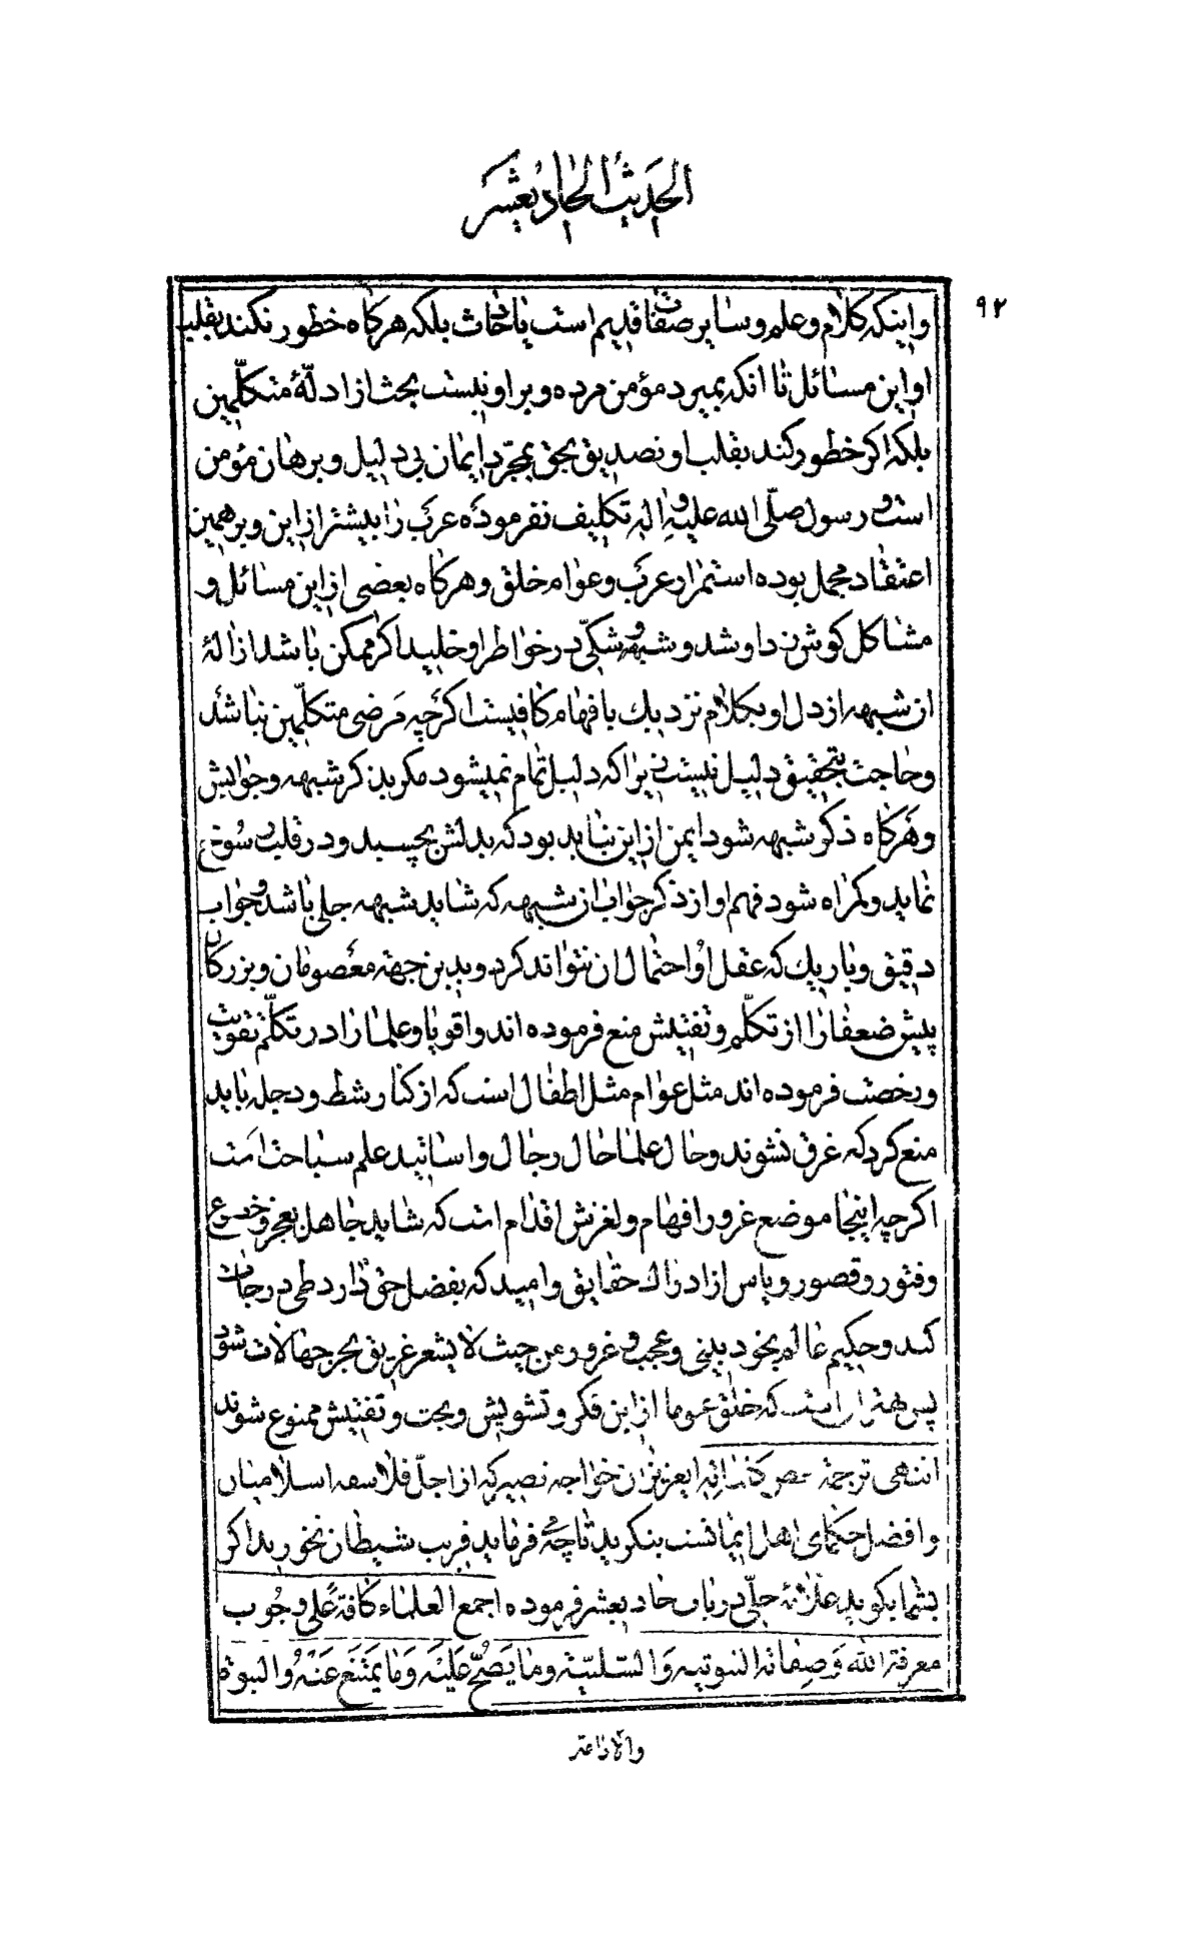 الحدیث الحادیعشر
۹۲
واینکه کلام وعلم وسایر صفات قدیم است یا حادث بلکه هرکاه خطور نکند بقلب
او این مسائل تا انکه بمیرد مؤمن مرده وبر او نیست بحث از ادلّهٔ متکلّمین
بلکه اکر خطور کند بقلب او تصدیق بحق بمجرّد ایمان بی دلیل وبرهان مؤمن
است و رسول صلّی الله علیه واله تکلیف نفرموده عرب را بیشتر از این وبرهمین
اعتقاد مجمل بوده استمرار عرب وعوام خلق وهرکاه بعضی از این مسائل و
مشاکل کوش زد او شد وشبهه وشکّی در خواطر او خلید اکر ممکن باشد ازالهٔ
ان شبهه از دل او بکلام نزدیك بافهام کافیست اکرچه مرضی متکلّمین نباشد
وحاجت بتحقیق دلیل نیست زیرا که دلیل تمام نمیشود مکر بذکر شبهه وجوابش
وهرکاه ذکر شبهه شود ایمن از این نباید بود که بدلش بچسبد ودر قلبش رسوخ
نماید وکمراه شود فهم او از ذکر جواب ان شبهه که شاید شبهه جلی باشد وجواب
دقیق وباریك که عقل او احتمال ان نتواند کرد وبدین جهة معصومان وبزرکان
پیش ضعفا را از تکلّم وتفتیش منع فرموده اند واقویا وعلما را در تکلّم تقویت
ورخصت فرموده اند مثل عوام مثل اطفال است که از کنار شط ودجله باید
منع کرد که غرق نشوند وحال علما حال رجال واساتید علم سباحت است
اکرچه اینجا موضع غرور افهام ولغزش اقدام است که شاید جاهل بعجز وخضوع
وفتور وقصور ویاس از ادراك حقایق وامید که بفضل حق دارد طی درجات
کند وحکیم عالم بخود بینی وعجب وغرور من حیث لا یشعر غریق بحر جهالات شود
پس بهتر ان است که خلق عموما از این فکر وتشویش وبحث وتفتیش ممنوع شوند
انتهی ترجمة ایعزیزان خواجه نصیر که از اجلّ فلاسفه اسلامیان
وافضل حکمای اهل ایمانست بنکرید تا چه فرماید فریب شیطان نخورید اکر
بشما بکوید علامهٔ حلّی در باب حادیعشر فرموده اجمع العلماء کافة علی وجوب
معرفة الله وصفاته الثبوتیه والسّلبیّة وما یصحّ علیه وما یمتنع عنه والنبوة